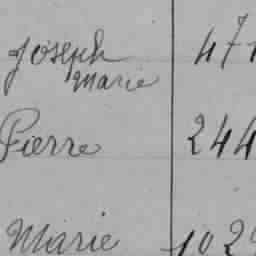 Joseph 471
Marie
Pierre 244
Marie 102